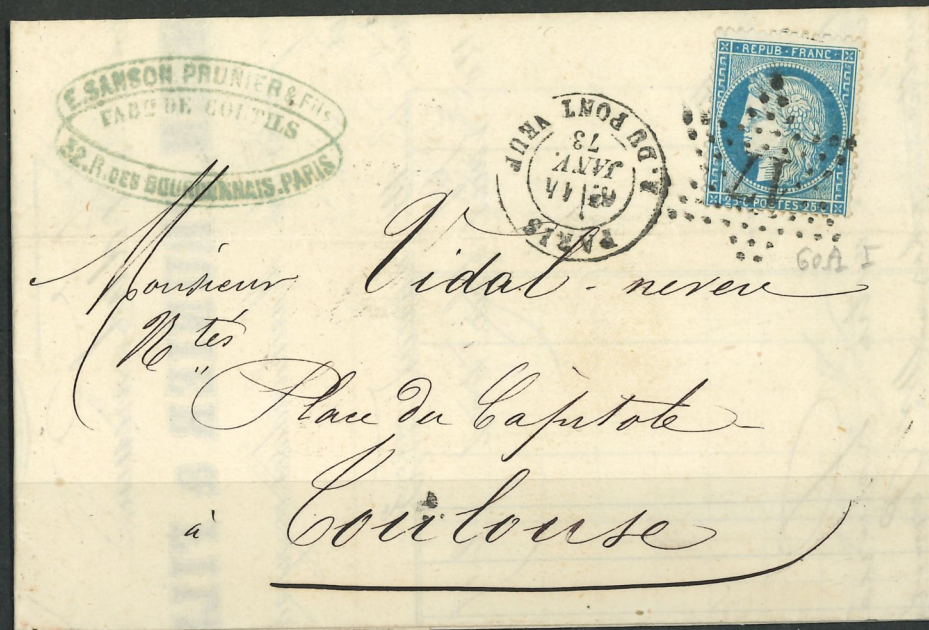 E. SANSON PRUNIER & Fils
FABts DE COUTILS
32. R. DES BOURDONNAIS. PARIS
PARIS
14
JANV.
73
R. DU PONT NEUF
REPUB · FRANC ·
25 c POSTES 25 c
Monsieur Vidal - neveu
Ntés
Place du Capitole
à Toulouse
60A I